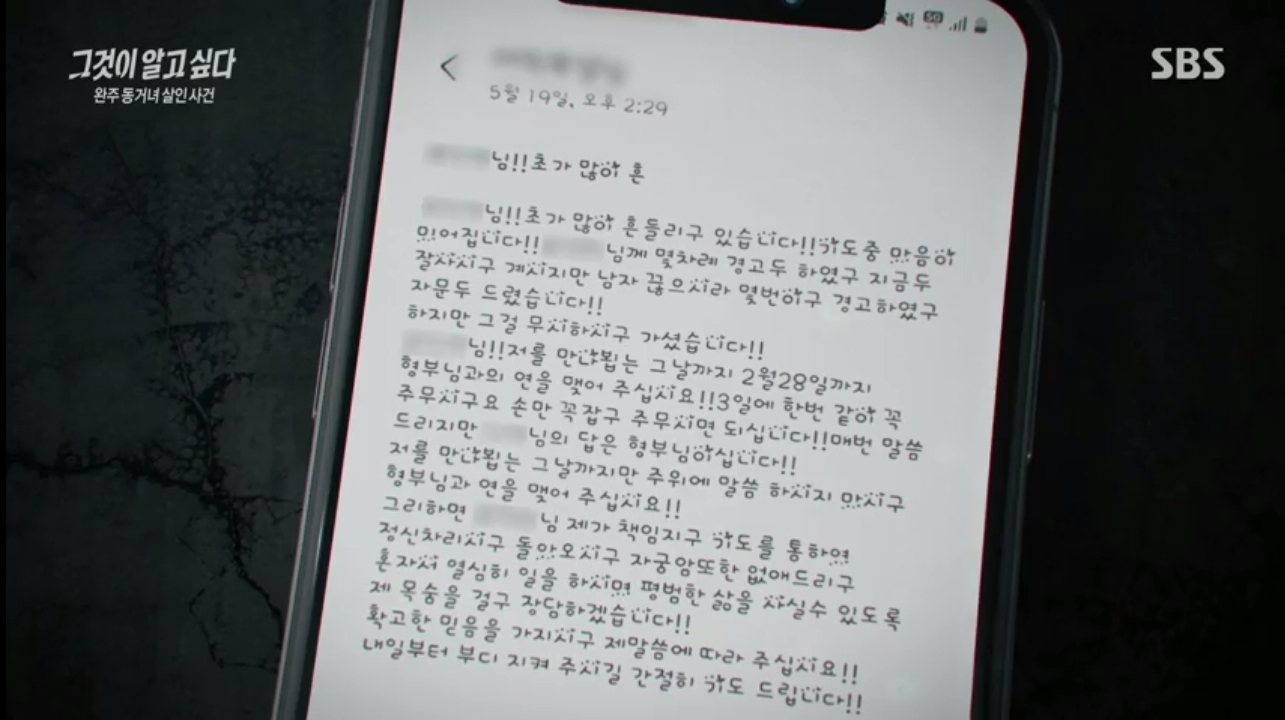 그것이 알고 싶다
완주 동거녀 살인 사건
SBS
5G
5월 19일, 오후 2:29
님!!초가 많이 흔
님!!초가 많이 흔들리구 있습니다!!기도중 마음이
미어집니다!! 님께 몇차례 경고두 하였구 지금두
잘사시구 계시지만 남자 끊으시라 몇번이구 경고하였구
자문두 드렸습니다!!
하지만 그걸 무시하시구 가셨습니다!!
님!!저를 만나뵙는 그날까지 2월28일까지
형부님과의 연을 맺어 주십시요!!3일에 한번 같이 꼭
주무시구요 손만 꼭잡구 주무시면 되십니다!!매번 말씀
드리지만 님의 답은 형부님이십니다!!
저를 만나뵙는 그날까지만 주위에 말씀 하시지 마시구
형부님과 연을 맺어 주십시요!!
그리하면 님 제가 책임지구 기도를 통하여
정신차리시구 돌아오시구 자궁암또한 없애드리구
혼자서 열심히 일을 하시며 평범한 삶을 사실수 있도록
제 목숨을 걸구 장담하겠습니다!!
확고한 믿음을 가지시구 제말씀에 따라 주십시요!!
내일부터 부디 지켜 주시길 간절히 기도 드립니다!!